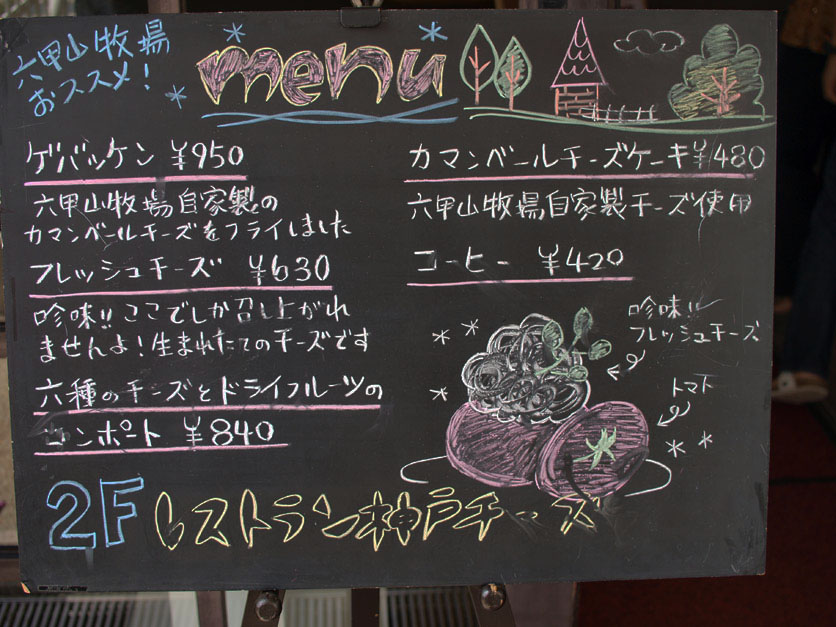 六甲山牧場
おススメ!
menu
ゲバッケン ¥950
六甲山牧場自家製の
カマンベールチーズをフライしました
フレッシュチーズ ¥630
吟味!!ここでしか召し上がれ
ませんよ!生まれたてのチーズです
六種のチーズとドライフルーツの
コンポート ¥840
カマンベールチーズケーキ ¥480
六甲山牧場自家製チーズ使用
コーヒー ¥420
吟味!!
フレッシュチーズ
トマト
2F レストラン神戸チーズ